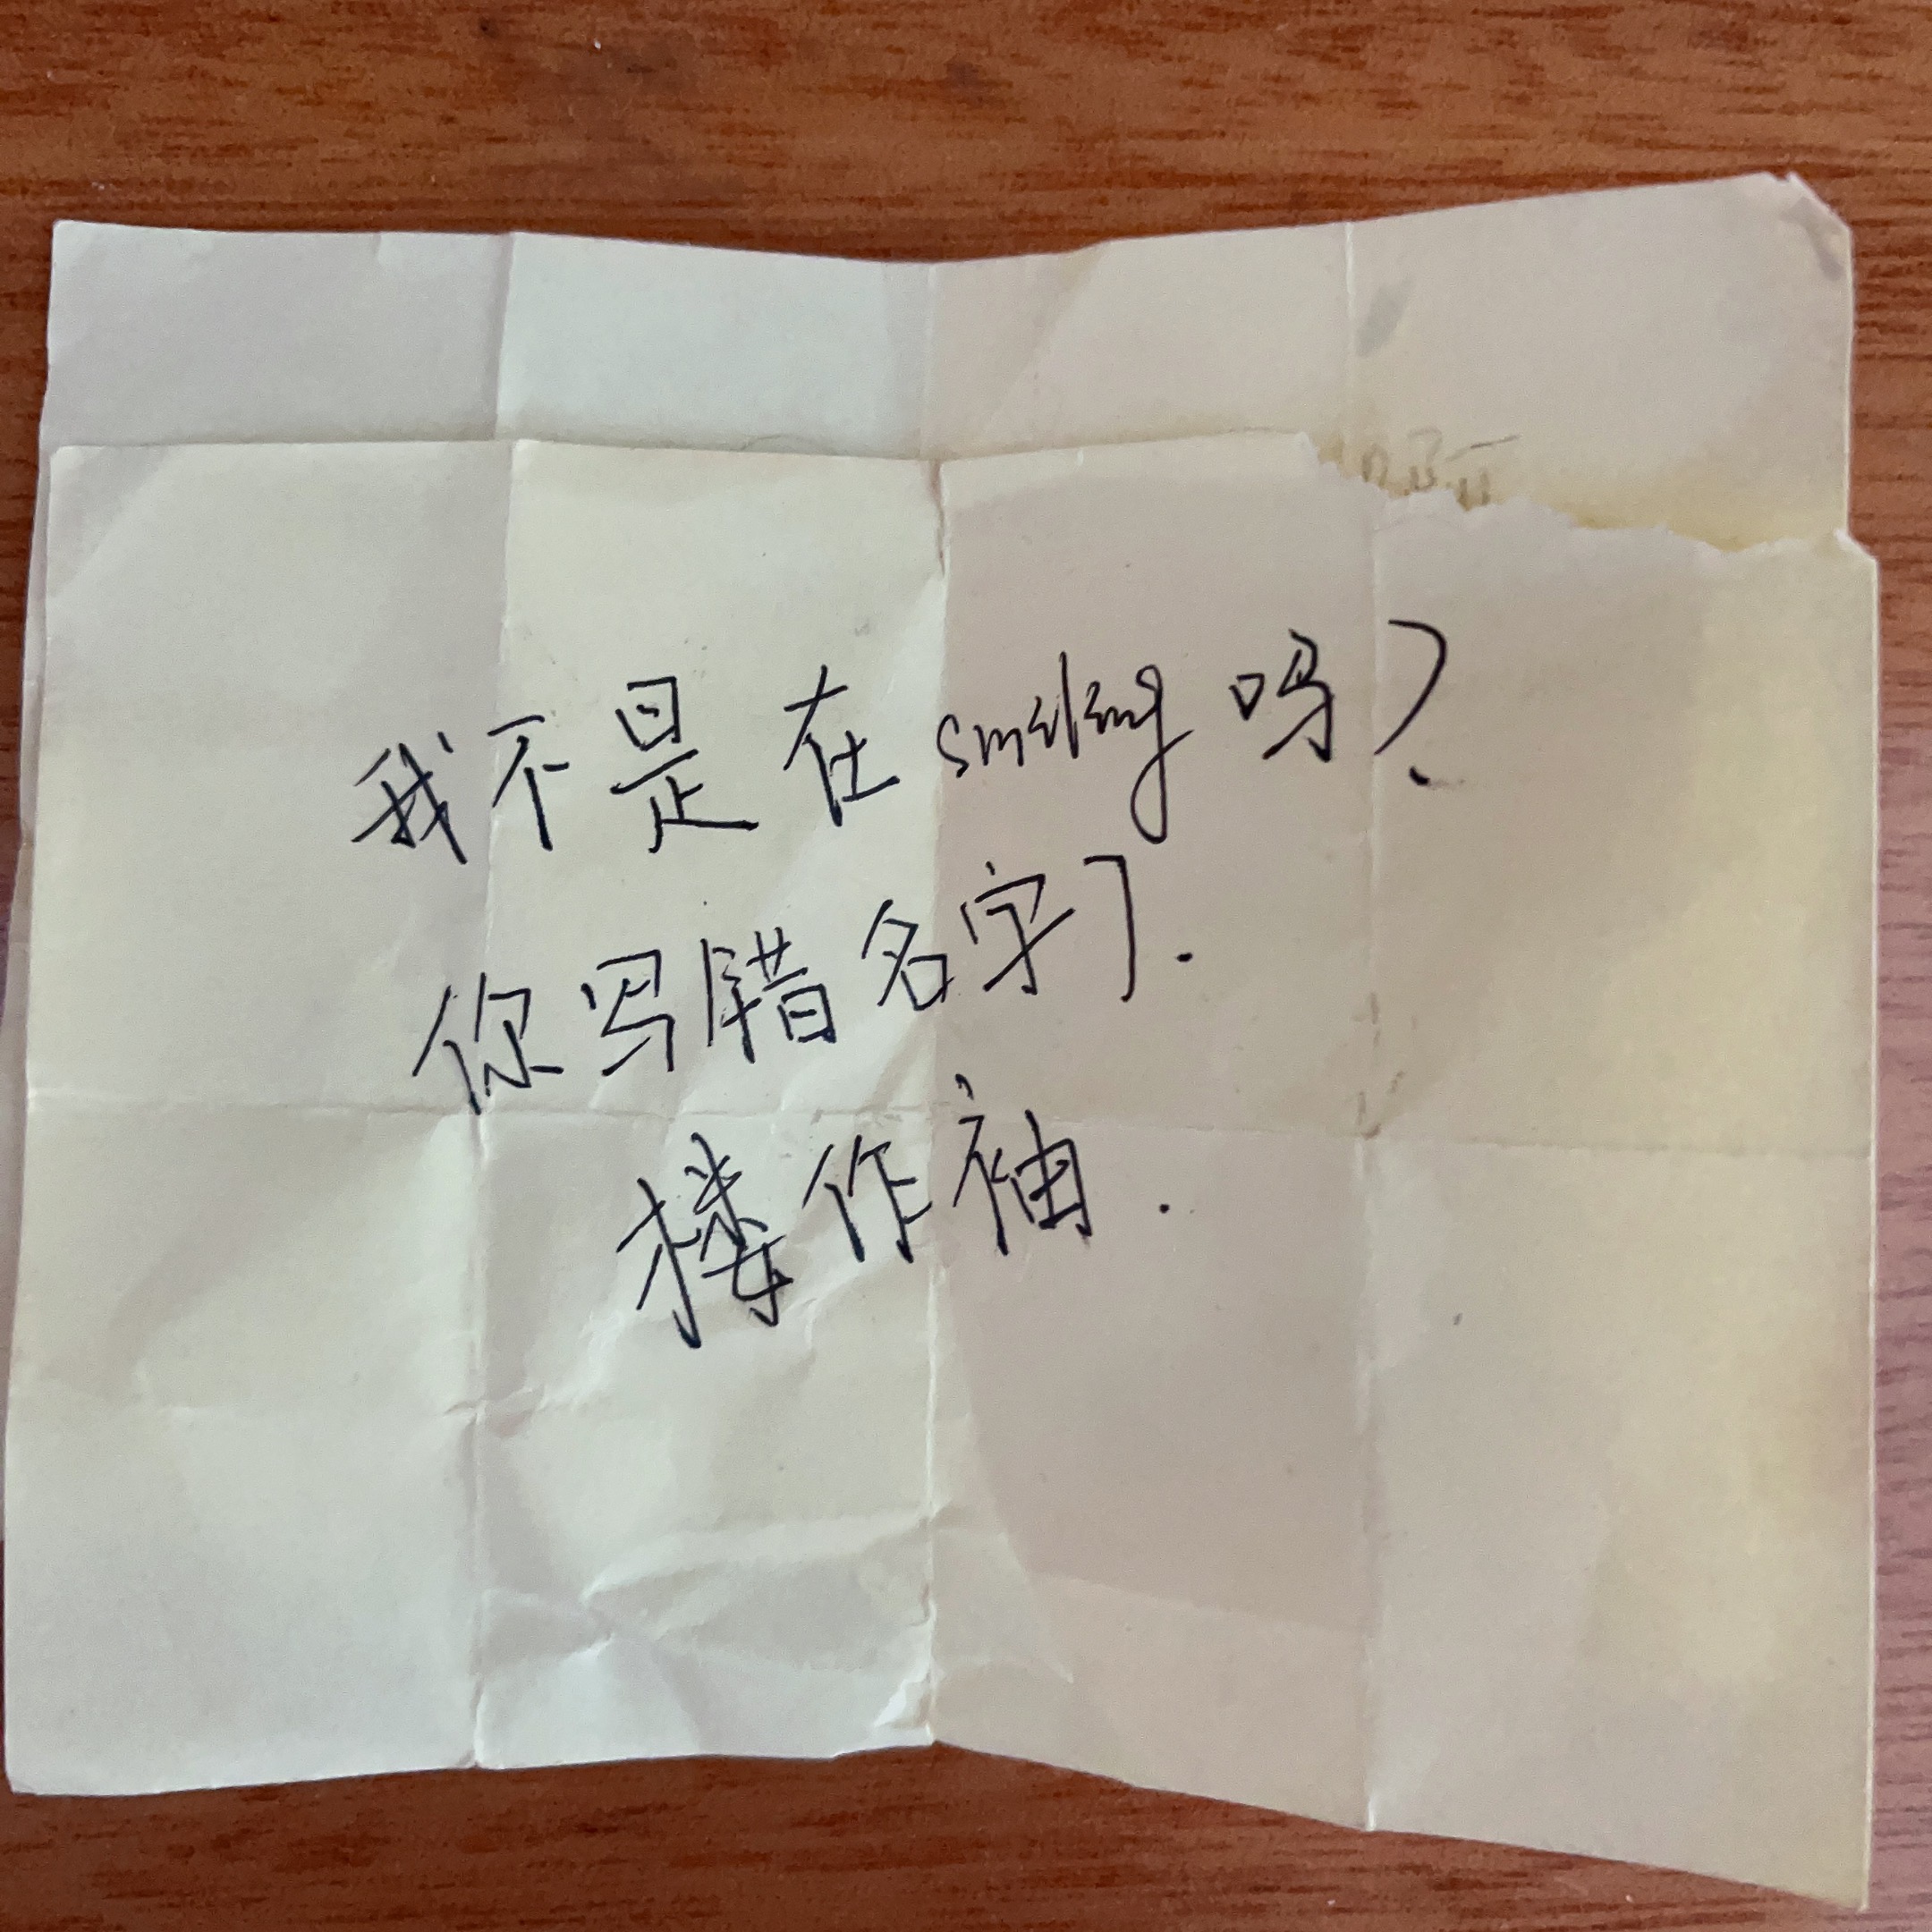 我不是在smiling吗？
你写错名字了.
楼作袖.